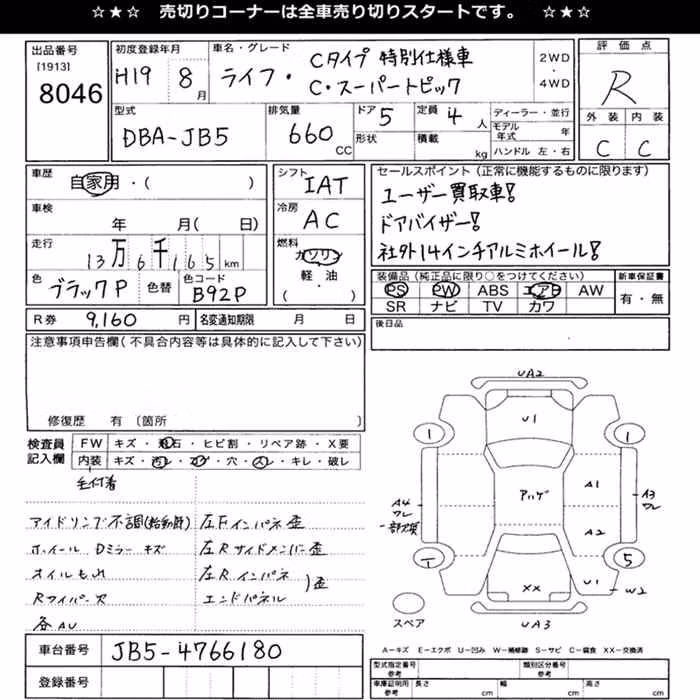 ☆★☆ 売切りコーナーは全車売り切りスタートです。 ☆★☆
出品番号
[1913]
8046
初度登録年月
H19 8月
車名・グレード
ライフ・
Cタイプ 特別仕様車
C・スーパートピック
2WD
・
4WD
評価点
R
外装 内装
C C
型式
DBA-JB5
排気量
660 CC
ドア 5
形状
定員 4 人
積載 kg
ディーラー・並行
モデル年式 年
ハンドル 左・右
車歴
自家用・( )
車検
年 月( 日)
走行
13万6千165km
色
ブラックP
色替
色コード
B92P
シフト
IAT
冷房
AC
燃料
ガソリン
軽・油
( )
セールスポイント(正常に機能するものに限ります)
ユーザー買取車!
ドアバイザー!
社外14インチアルミホイール!
装備品(純正品に限り○をつけてください)
PS PW ABS エアB AW
SR ナビ TV カワ
新車保証書
有・無
R券 9,160円
名変通知期限 月 日
後日品
注意事項申告欄(不具合内容等は具体的に記入して下さい)
修復歴 有〔箇所 〕
検査員
記入欄
FW キズ・飛石・ヒビ割・リペア跡・X要
内装 キズ・汚レ・コゲ・穴・スレ・キレ・破レ
毛付着
アイドリング不調(始動時)
ホイール Dミラー キズ
オイルもれ
Rワイパー欠
各AU
左Fインパネ歪
左Rサイドメンバー歪
左Rインパネ
エンドパネル
)歪
UA2
U1
1
1
アハゲ
A1
A2
A3
ワレ
A4
ワレ
一部欠損
1
5
XX
U1
W2
UA3
スペア
A-キズ E-エクボ U-凹み W-補修跡 S-サビ C-腐食 XX-交換済
車台番号
JB5-4766180
登録番号
型式指定番号
参考
類別区分番号
参考
車庫証明用
参考
長さ cm
幅 cm
高さ cm